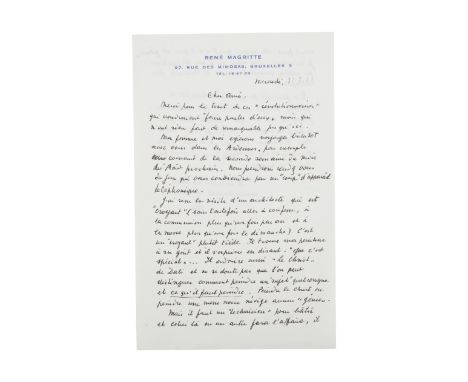 RENÉ MAGRITTE
97, RUE DES MIMOSAS, BRUXELLES 3
TÉL. 15.07.30
Mercredi,
Cher Ami,
Merci pour le texte de ces "révolutionnaires"
qui voudraient faire parler d'eux, mais qui
n'ont rien fait de remarquable jusqu'ici.
Ma femme et moi espérons voyager bientôt
avec vous dans les Ardennes, par exemple
au courant de la seconde semaine du mois
de Août prochain. Nous prendrons rendez-vous
du jour qui vous conviendra par un coup d'appareil
téléphonique.
J'ai reçu la visite d'un architecte qui est
"croyant" (sans toutefois aller à confesse, à
la communion plus qu'une fois par an et à
la messe plus qu'une fois le dimanche) C'est
un "croyant" plutôt tiède. Il trouve ma peinture
à son goût et il s'exprime en disant: "que c'est
spécial"... Il admire aussi "le Christ"
de Dali et ne se doute pas que l'on peut
distinguer comment peindre un sujet quelconque
et ce qu'il faut peindre. Peindre le Christ ou
peindre une mère noire n'exige aucun "génie".
Mais il faut un "technicien" pour bâtir
et celui-là ou un autre fera l'affaire, il